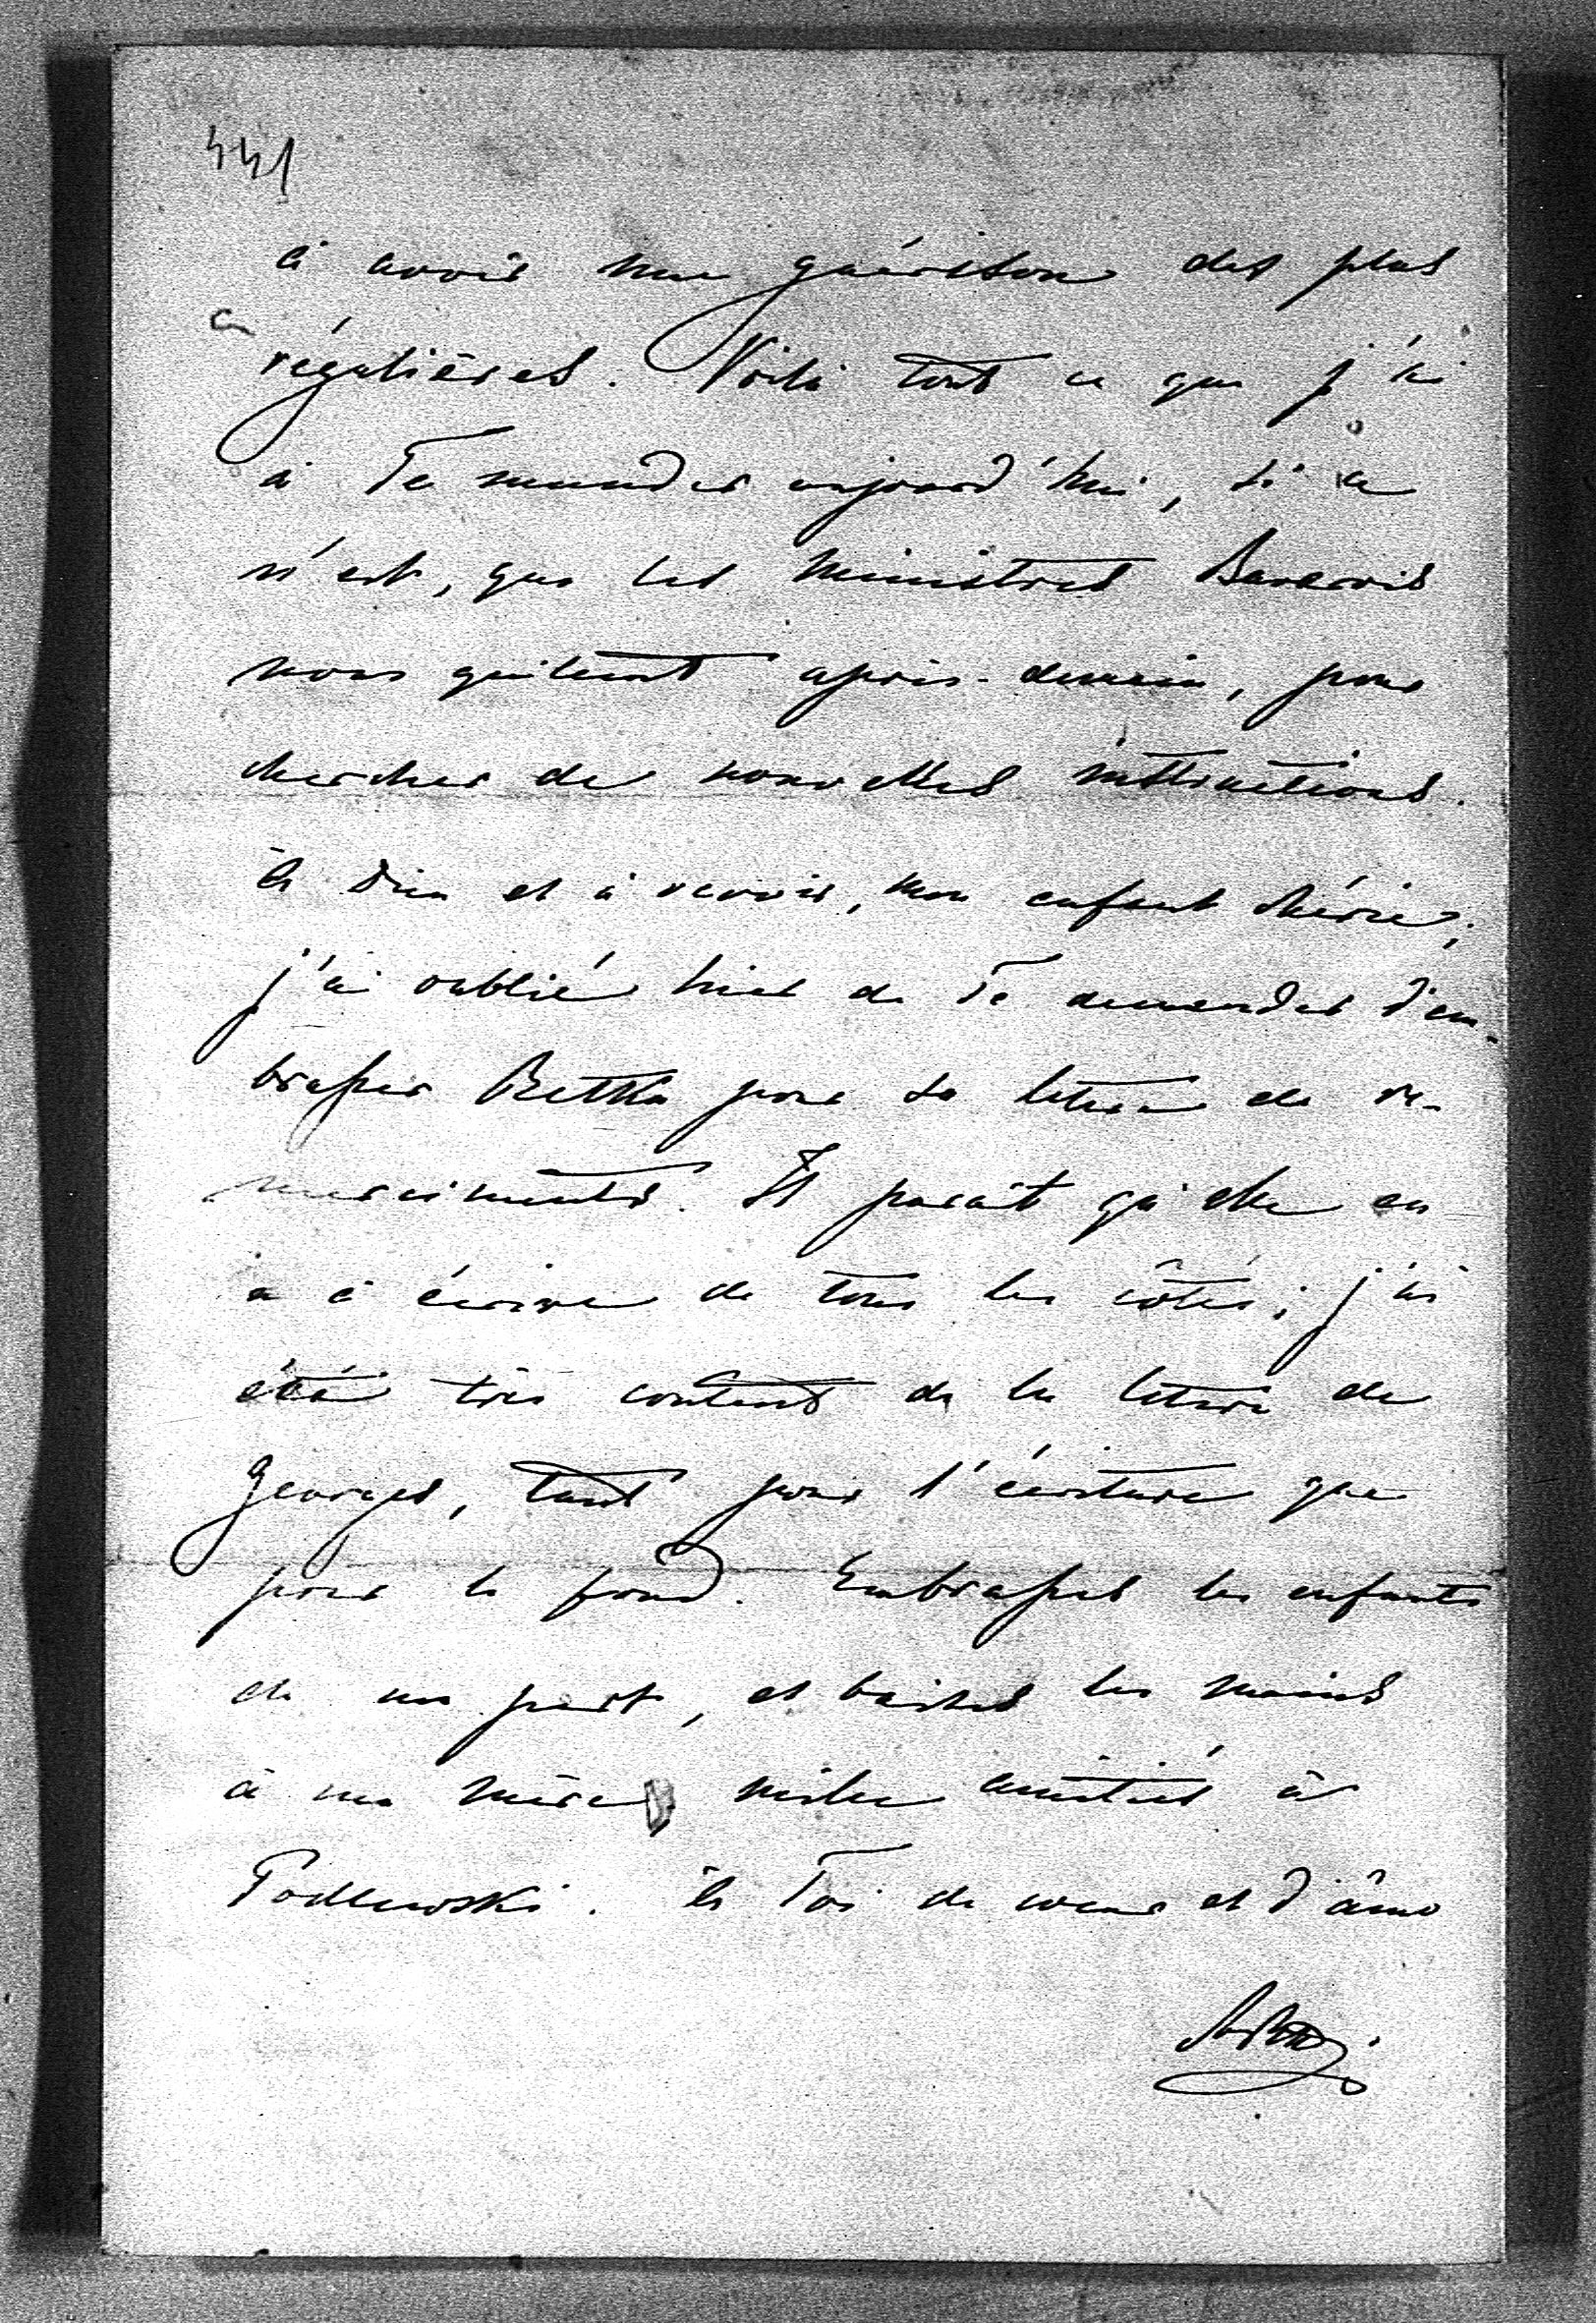 441
à avoir une guérison des plus
régulières. Voilà tout ce que j'ai
à Te mander aujourd'hui, si ce
n'est, que les ministres Bavarois
nous quittent après-demain, pour
chercher de nouvelles instructions.
à Dieu et à revoir, mon enfant chérie;
j'ai oublié hier de Te demander d'em-
brasser Bettka pour sa lettre de re-
merciments. Il paraît qu'elle en
a à écrire de tous les côtés; j'ai
été très content de la lettre de
Georges, tant pour l'écriture que
pour le fond. Embrasses les enfants
de ma part, et baises les mains
à ma mère, mille amitiés à
Podlewski. à Toi de coeur et d'âme